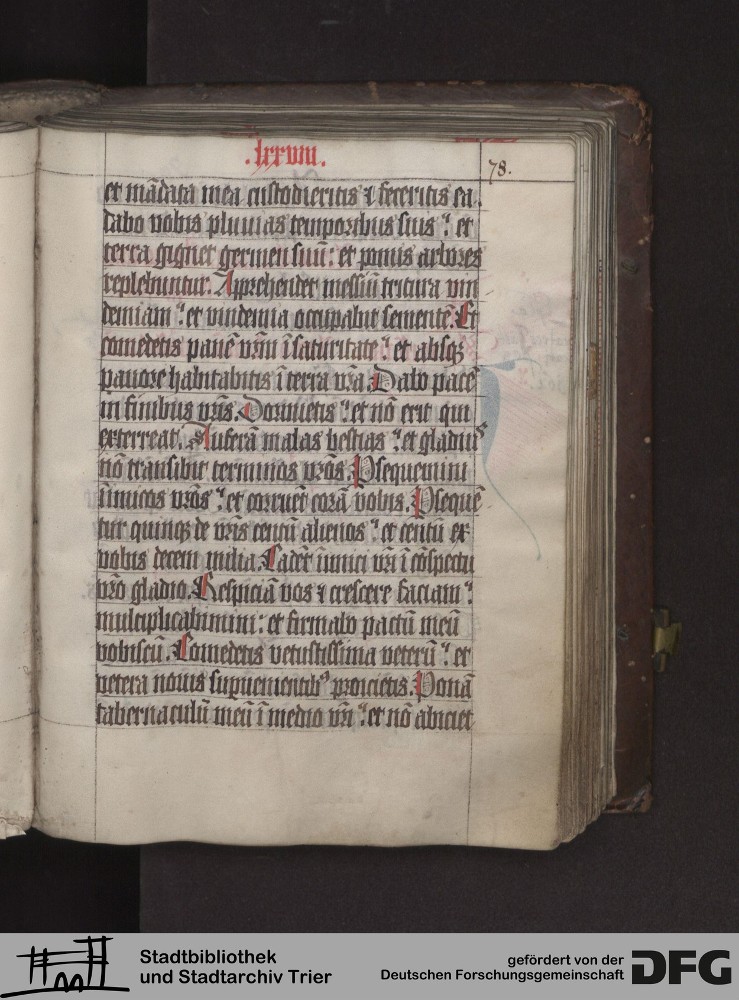 .lxxviii.
78.
et mādata mea custodieritis ⁊ feceritis ea.
dabo vobis pluuias temporibus suis : et
terra gignet germen suū : et pomis arbores
replebuntur. Apprehendet messiū tritura vin
demiam : et vindemia occupabit sementē. Et
comedetis panē vr̄m ī saturitate : et absqꝫ
pauore habitabitis ī terra vr̄a. Dabo pacē
in finibus vr̄is. Dormietis : et nō erit qui
exterreat. Auferā malas bestias : et gladiuˢ
nō transibit terminos vr̄os. Ꝑsequemini
īimicos vr̄os : et corruēt corā vobis. Ꝑsequē
tur quinqꝫ de vr̄is centū alienos : et centū ex
vobis decem milia. Cadēt īimici vr̄i ī cōspectu
vr̄o gladio. Respiciā vos ⁊ crescere faciam :
multiplicabimini : et firmabo pactū meū
vobiscū. Comedetis vetustissima veterū : et
vetera nouis suꝑuenientibꝰ proicietis. Ponā
tabernaculū meū ī medio vr̄i : et nō abiciet
Stadtbibliothek
und Stadtarchiv Trier
gefördert von der
Deutschen Forschungsgemeinschaft
DFG